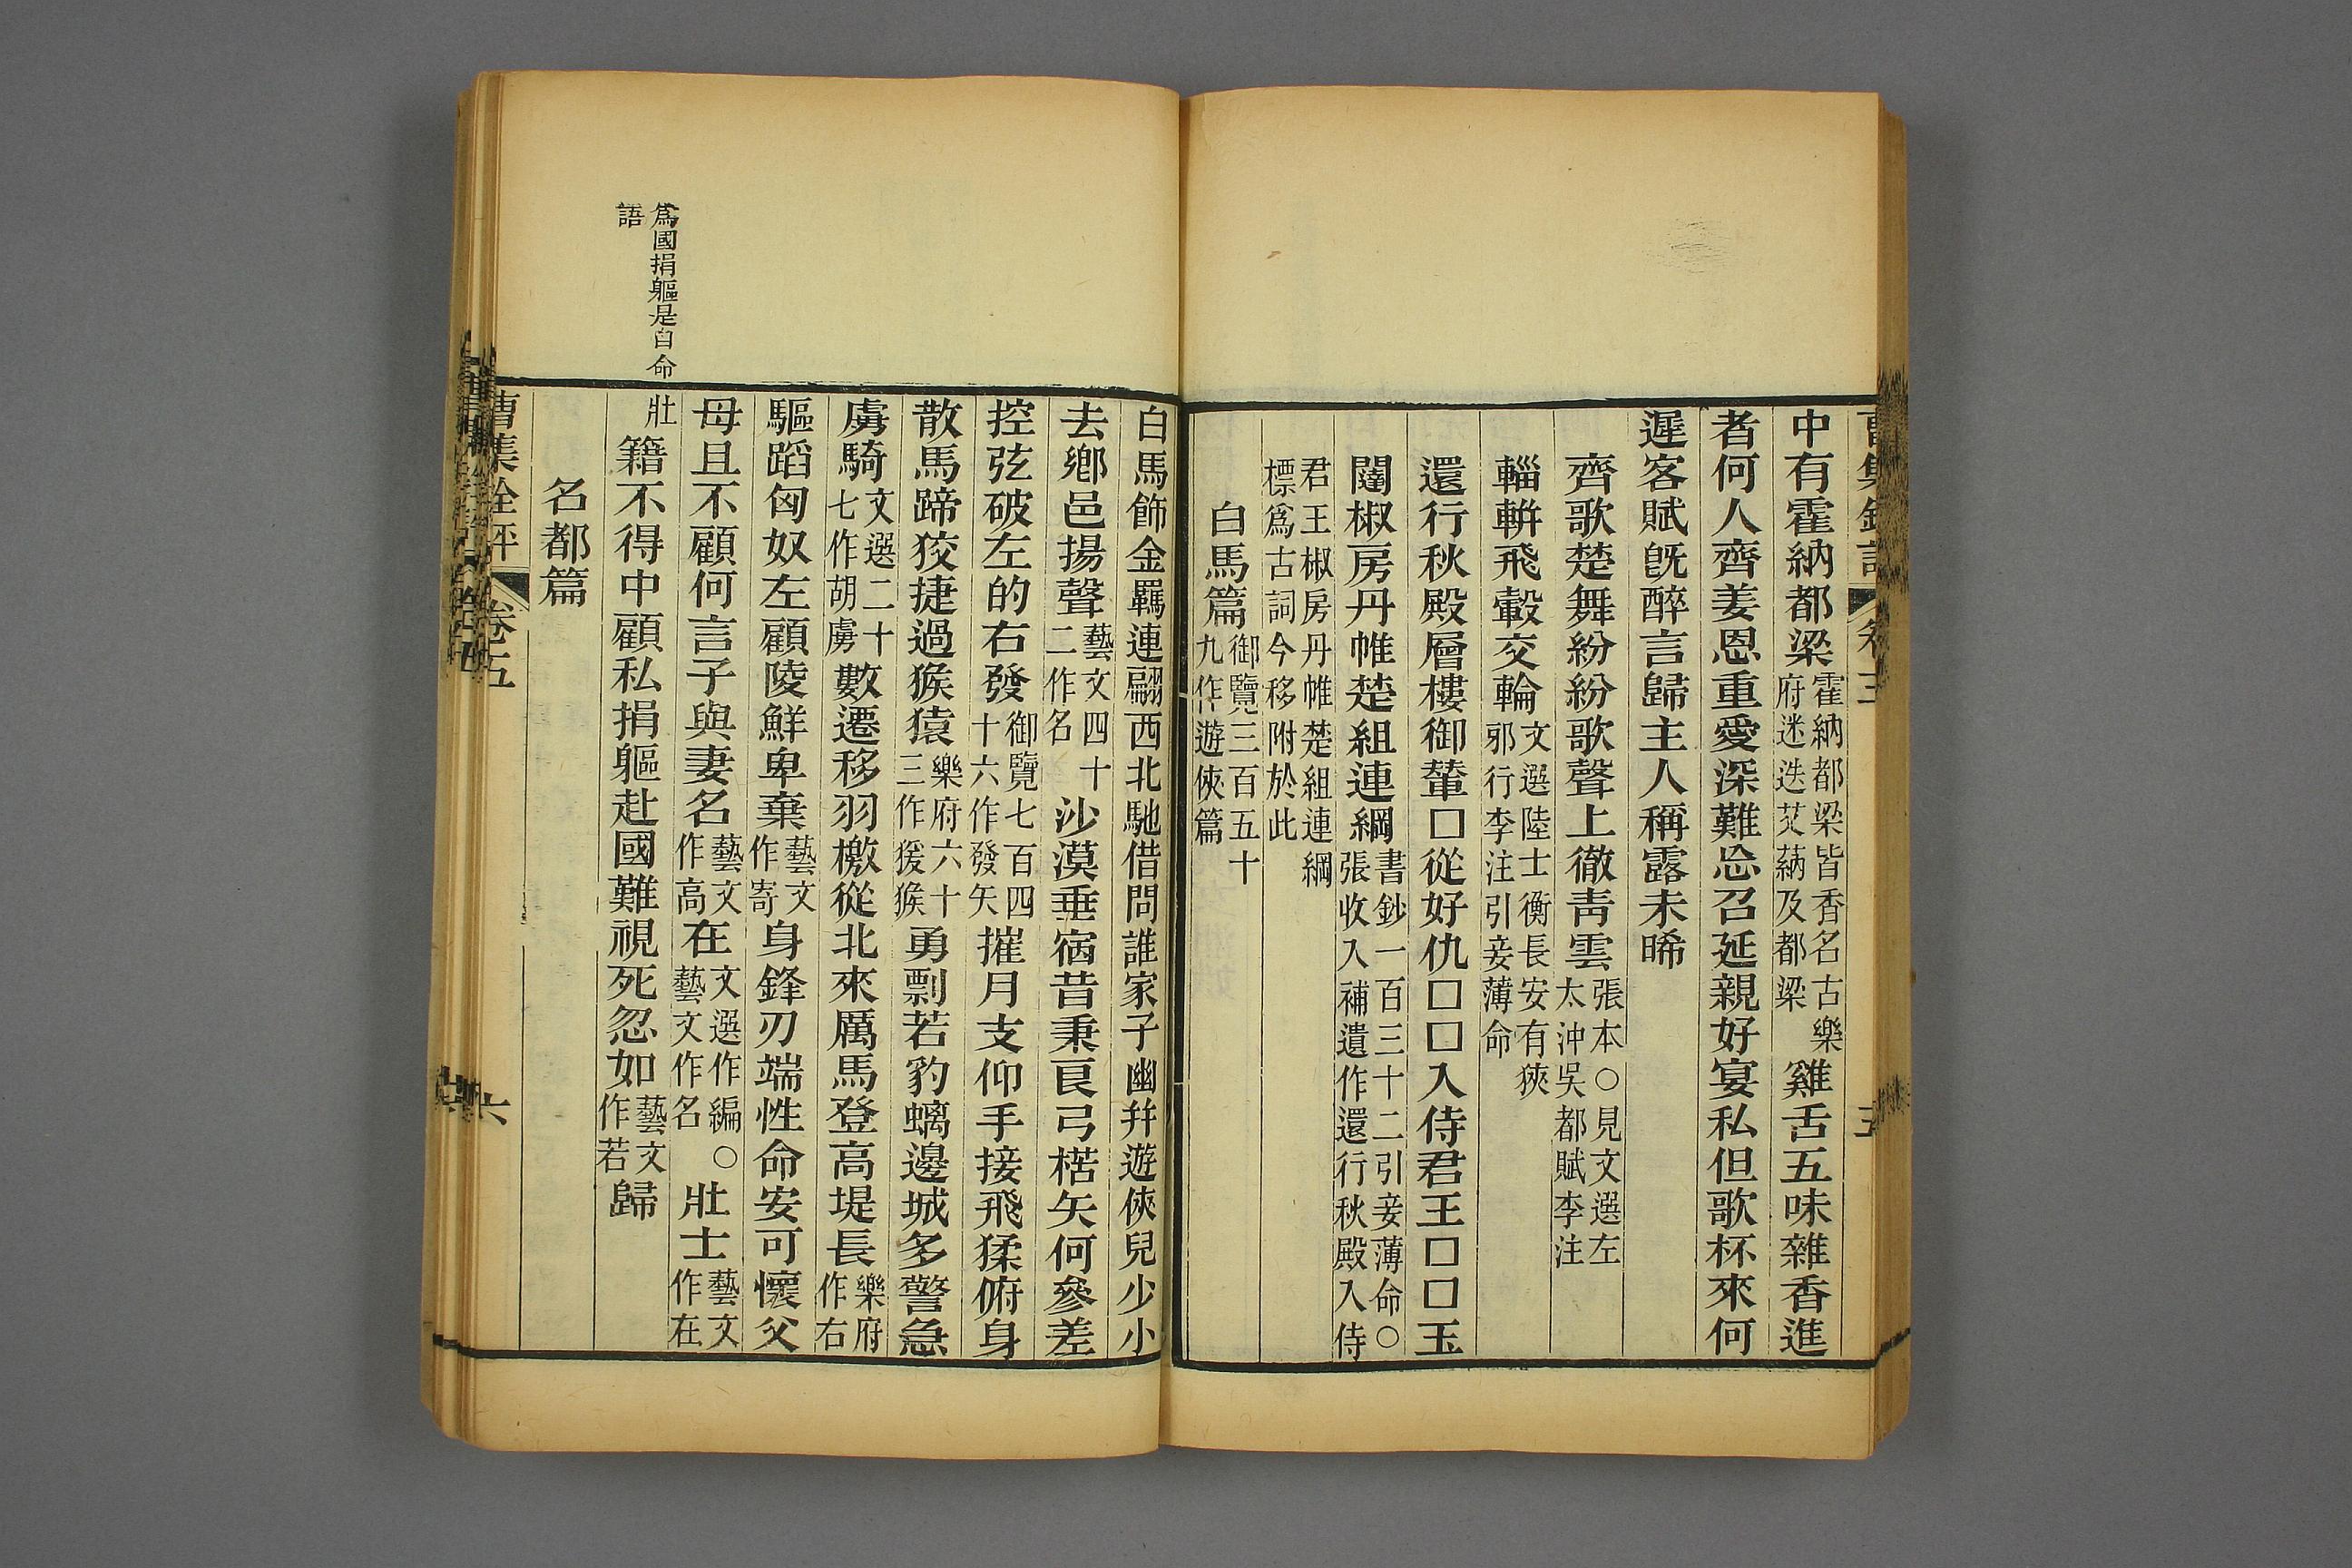 中有霍納都梁霍納都梁皆香名古樂府迷迭艾蒳及都梁雞舌五味雜香進
者何人齊姜恩重愛深難忩召延親好宴私但歌杯來何
遲客賦旣醉言歸主人稱露未晞
齊歌楚舞紛紛歌聲上徹靑雲張本○見文選左太沖吳都賦李注
輜軿飛轂交輪文選陸士衡長安有狹邪行李注引妾薄命
還行秋殿層樓御輦□從好仇□□入侍君王□□玉
闥椒房丹帷楚組連綱書鈔一百三十二引妾薄命○張收入補遺作還行秋殿入侍
君王椒房丹帷楚組連綱標爲古詞今移附於此
白馬篇御覽三百五十九作遊俠篇
白馬飾金羈連翩西北馳借問誰家子幽幷遊俠兒少小
去鄕邑揚聲藝文四十二作名沙漠垂宿昔秉良弓楛矢何參差
控弦破左的右發御覽七百四十六作發矢摧月支仰手接飛猱俯身
散馬蹄狡捷過猴猿樂府六十三作猨猴勇剽若豹螭邊城多警急
虜騎文選二十七作胡虜數遷移羽檄從北來厲馬登高堤長樂府作右
驅蹈匈奴左顧陵鮮卑棄藝文作寄身鋒刃端性命安可懷父
母且不顧何言子與妻名藝文作高在文選作編○藝文作名壯士藝文作在
壯籍不得中顧私捐軀赴國難視死忽如藝文作若歸
名都篇
曹集銓評
卷五
六
爲國捐軀是自命
語